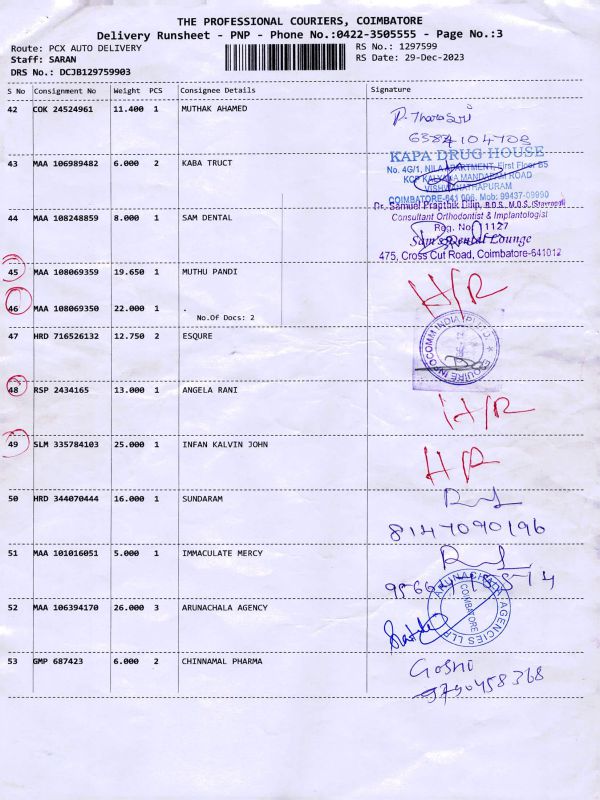 THE PROFESSIONAL COURIERS, COIMBATORE
Delivery Runsheet - PNP - Phone No.:0422-3505555 - Page No.:3
Route: PCX AUTO DELIVERY
RS No.: 1297599
Staff: SARAN
RS Date: 29-Dec-2023
DRS No.: DCJB129759903
S No Consignment No Weight PCS Consignee Details Signature
42 COK 24524961 11.400 1 MUTHAK AHAMED
6384104709
43 MAA 106989482 6.000 2 KABA TRUCT
KAPA DRUG HOUSE
No. 4G/1, NILA APARTMENT, First Floor 85
KCP KALYANA MANDAPAM ROAD
VISHWANATHAPURAM
COIMBATORE-641 006, Mob: 99437-09990
44 MAA 108248859 8.000 1 SAM DENTAL
Dr. Samuel Prapthik Dilip, B.D.S., M.D.S.
Consultant Orthodontist & Implantologist
Reg. No 1127
Sam's Dental Lounge
475, Cross Cut Road, Coimbatore-641012
45 MAA 108069359 19.650 1 MUTHU PANDI
H/R
46 MAA 108069350 22.000 1 .
No.Of Docs: 2
47 HRD 716526132 12.750 2 ESQURE
48 RSP 2434165 13.000 1 ANGELA RANI
H/R
49 SLM 335784103 25.000 1 INFAN KALVIN JOHN
HR
50 HRD 344070444 16.000 1 SUNDARAM
8147090196
51 MAA 101016051 5.000 1 IMMACULATE MERCY
52 MAA 106394170 26.000 3 ARUNACHALA AGENCY
ARUNACHALA AGENCIES LLP
COIMBATORE
53 GMP 687423 6.000 2 CHINNAMAL PHARMA
9790458368